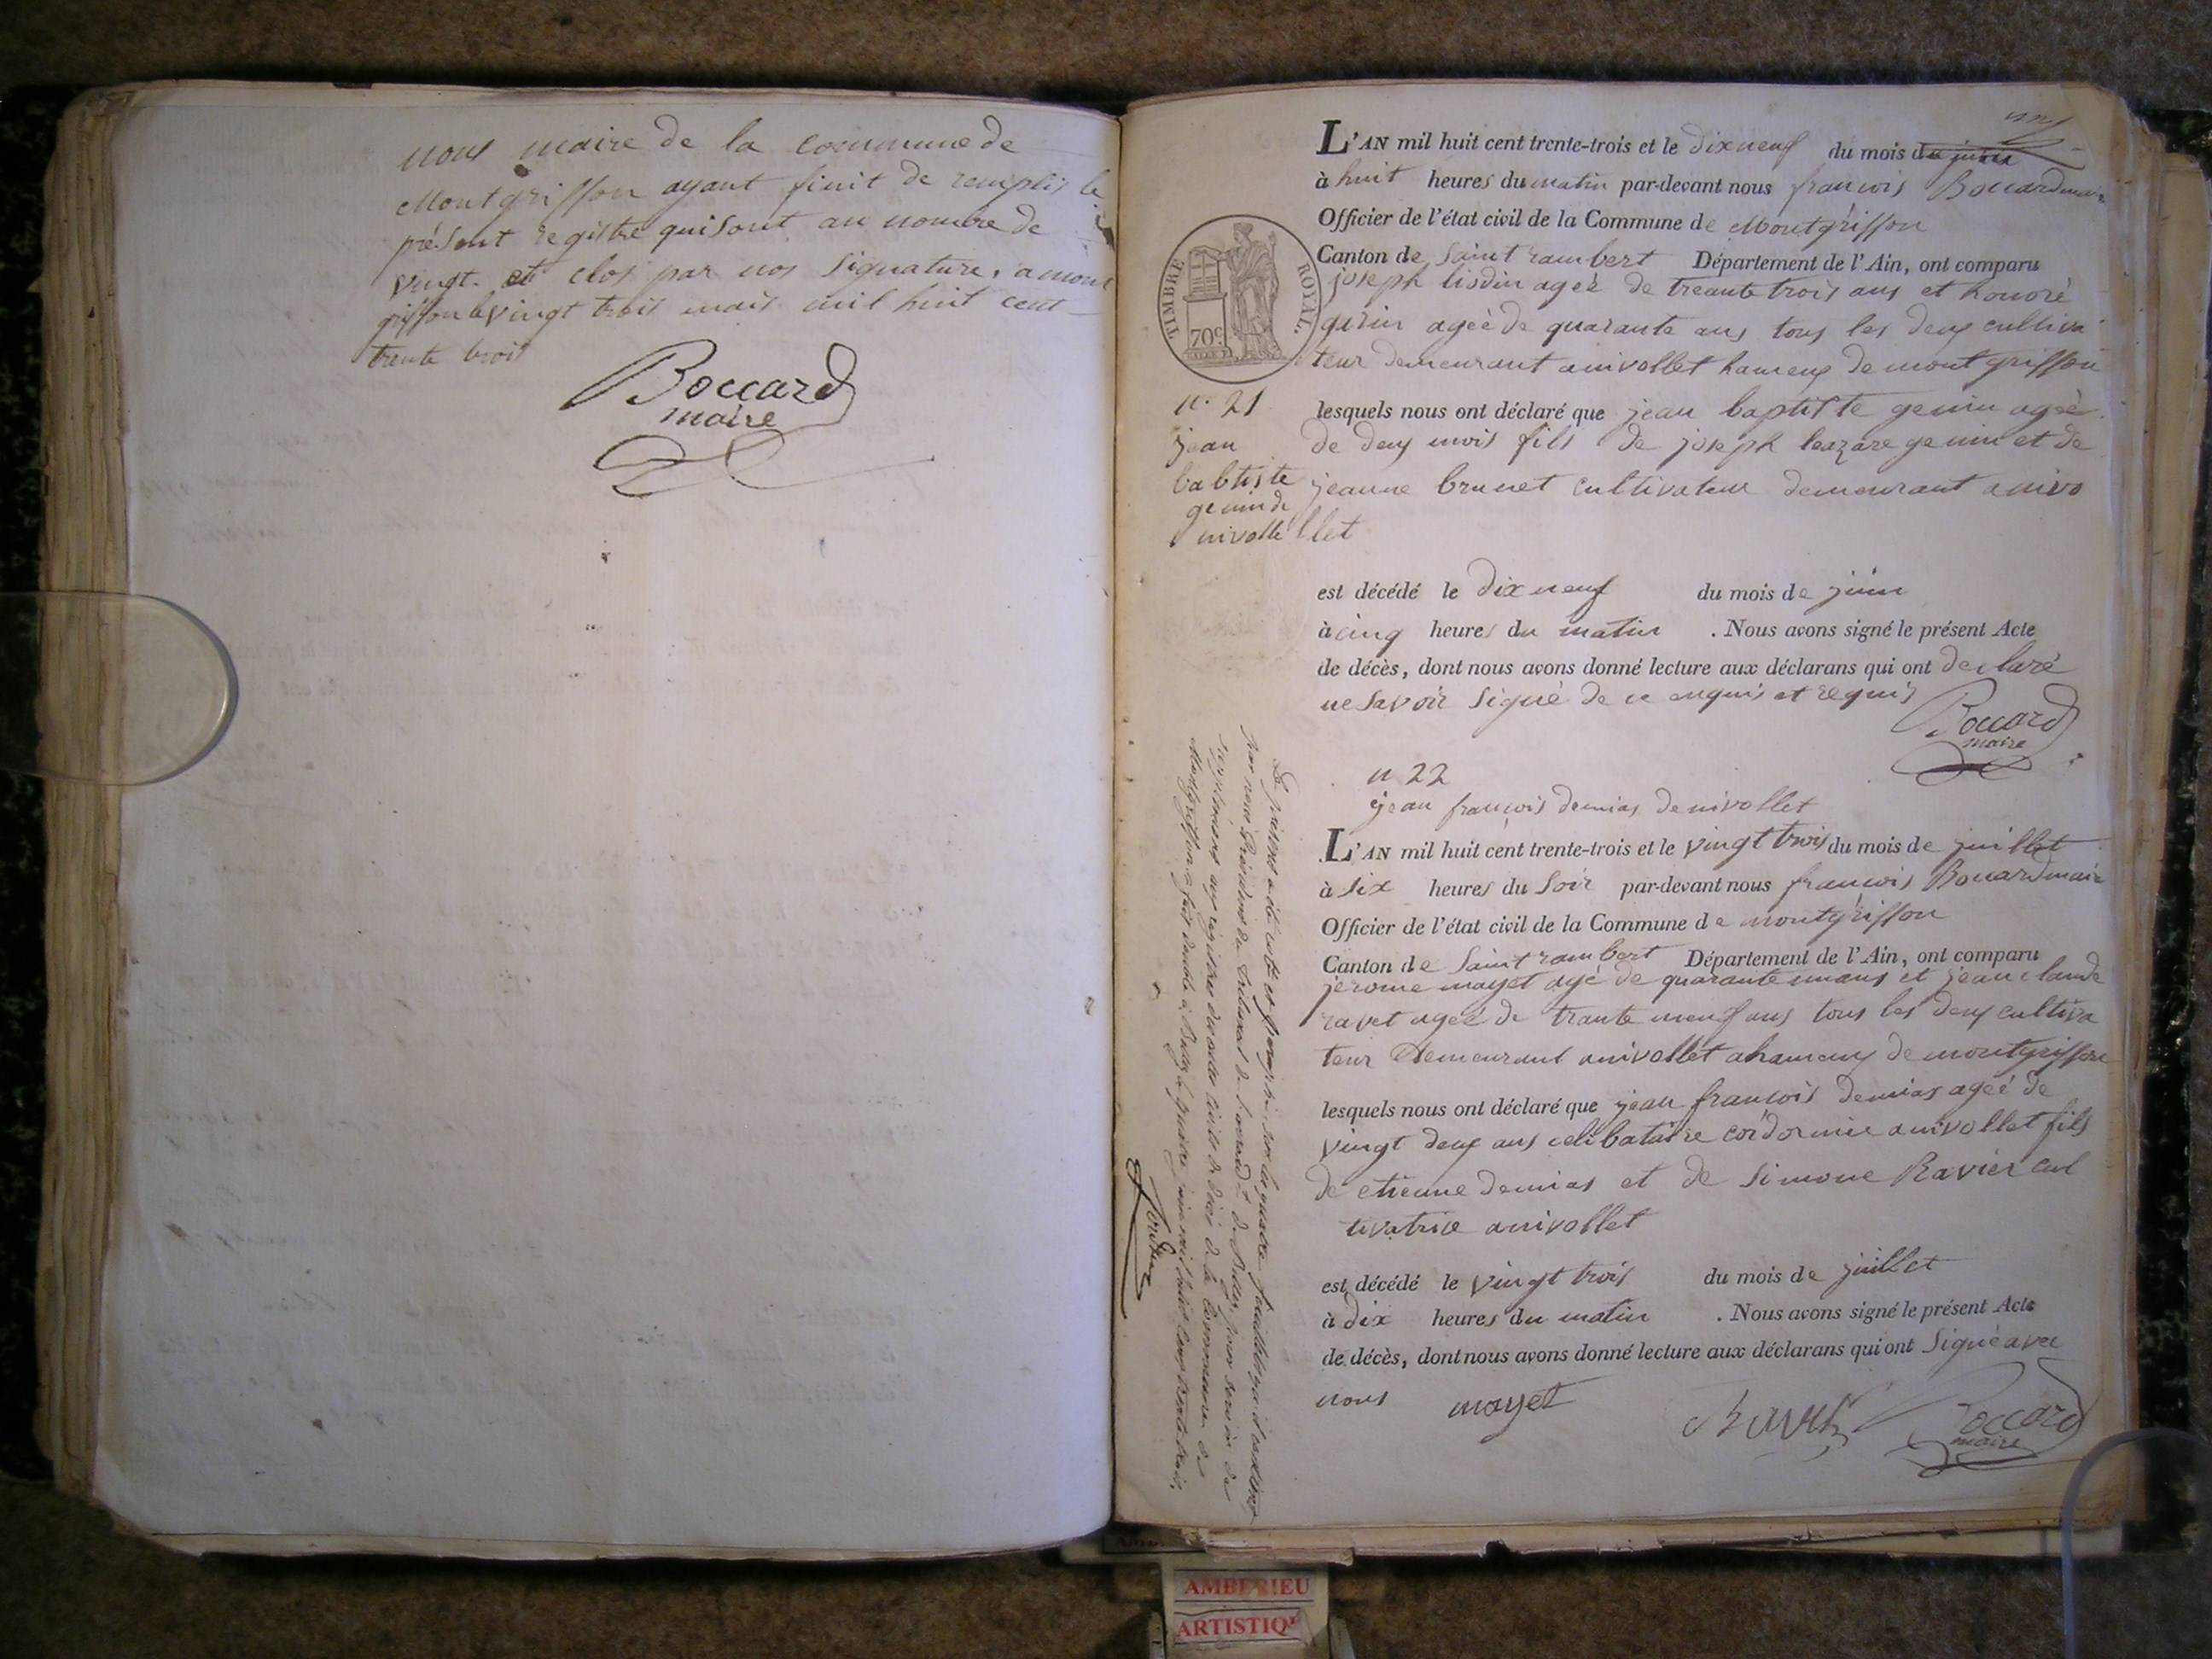 nous maire de la commune de
Montgriffon ayant finit de remplis le
présent registre qui sont au nombre de
vingt. et clos par nos signature, a mont
griffon le vingt trois mais mil huit cent
trente trois
Boccard
maire
L'AN mil huit cent trente-trois et le dix neuf du mois de juin
à huit heures du matin par-devant nous francois Boccard maire
Officier de l'état civil de la Commune de Montgriffon
Canton de Saint rambert Département de l'Ain, ont comparu
joseph lisdin ageé de treante trois ans et honoré
gurin ageé de quarante ans tous les deux cultiva
teur demeurant a nivollet hameux de montgriffon
TIMBRE ROYAL.
70c.
n. 21
jean
babtiste
genin de
nivolle
lesquels nous ont déclaré que jean baptiste genin ageé
de deux mois fils de joseph leazare genin et de
jeanne brunet cultivateur demeurant a nivo
llet
est décédé le dix neuf du mois de juin
à cinq heures du matin . Nous avons signé le présent Acte
de décès, dont nous avons donné lecture aux déclarans qui ont declaré
ne savoir signé de ce enquis et requis
Boccard
maire
n 22
jean francois demias de nivollet
L'AN mil huit cent trente-trois et le vingt trois du mois de juillet
à six heures du soir par-devant nous francois Boccard maire
Officier de l'état civil de la Commune de montgriffon
Canton de Saint rambert Département de l'Ain, ont comparu
jerome mayet agé de quarante un ans et jean claude
ravet ageé de trante neuf ans tous les deux cultiva
teur demeurant a nivollet a hameux de montgriffon
lesquels nous ont déclaré que jean francois demias ageé de
vingt deux ans celibataire cordornie a nivollet fils
de etienne demias et de simone Ravier cul
tivatrice a nivollet
est décédé le vingt trois du mois de juillet
à dix heures du matin . Nous avons signé le présent Acte
de décès, dont nous avons donné lecture aux déclarans qui ont signé avec
nous mayet Ravet Boccard
maire
Le présent a été coté et paraphé sur les quatre feuillets qu'il contient
par nous Président du Tribunal de de Belley, pour servir de
supplément aux registres des actes civils de décès de la Commune de
Montgriffon, fait double à Belley le quinze juin mil huit cent trente trois.
AMBERIEU
ARTISTIQU